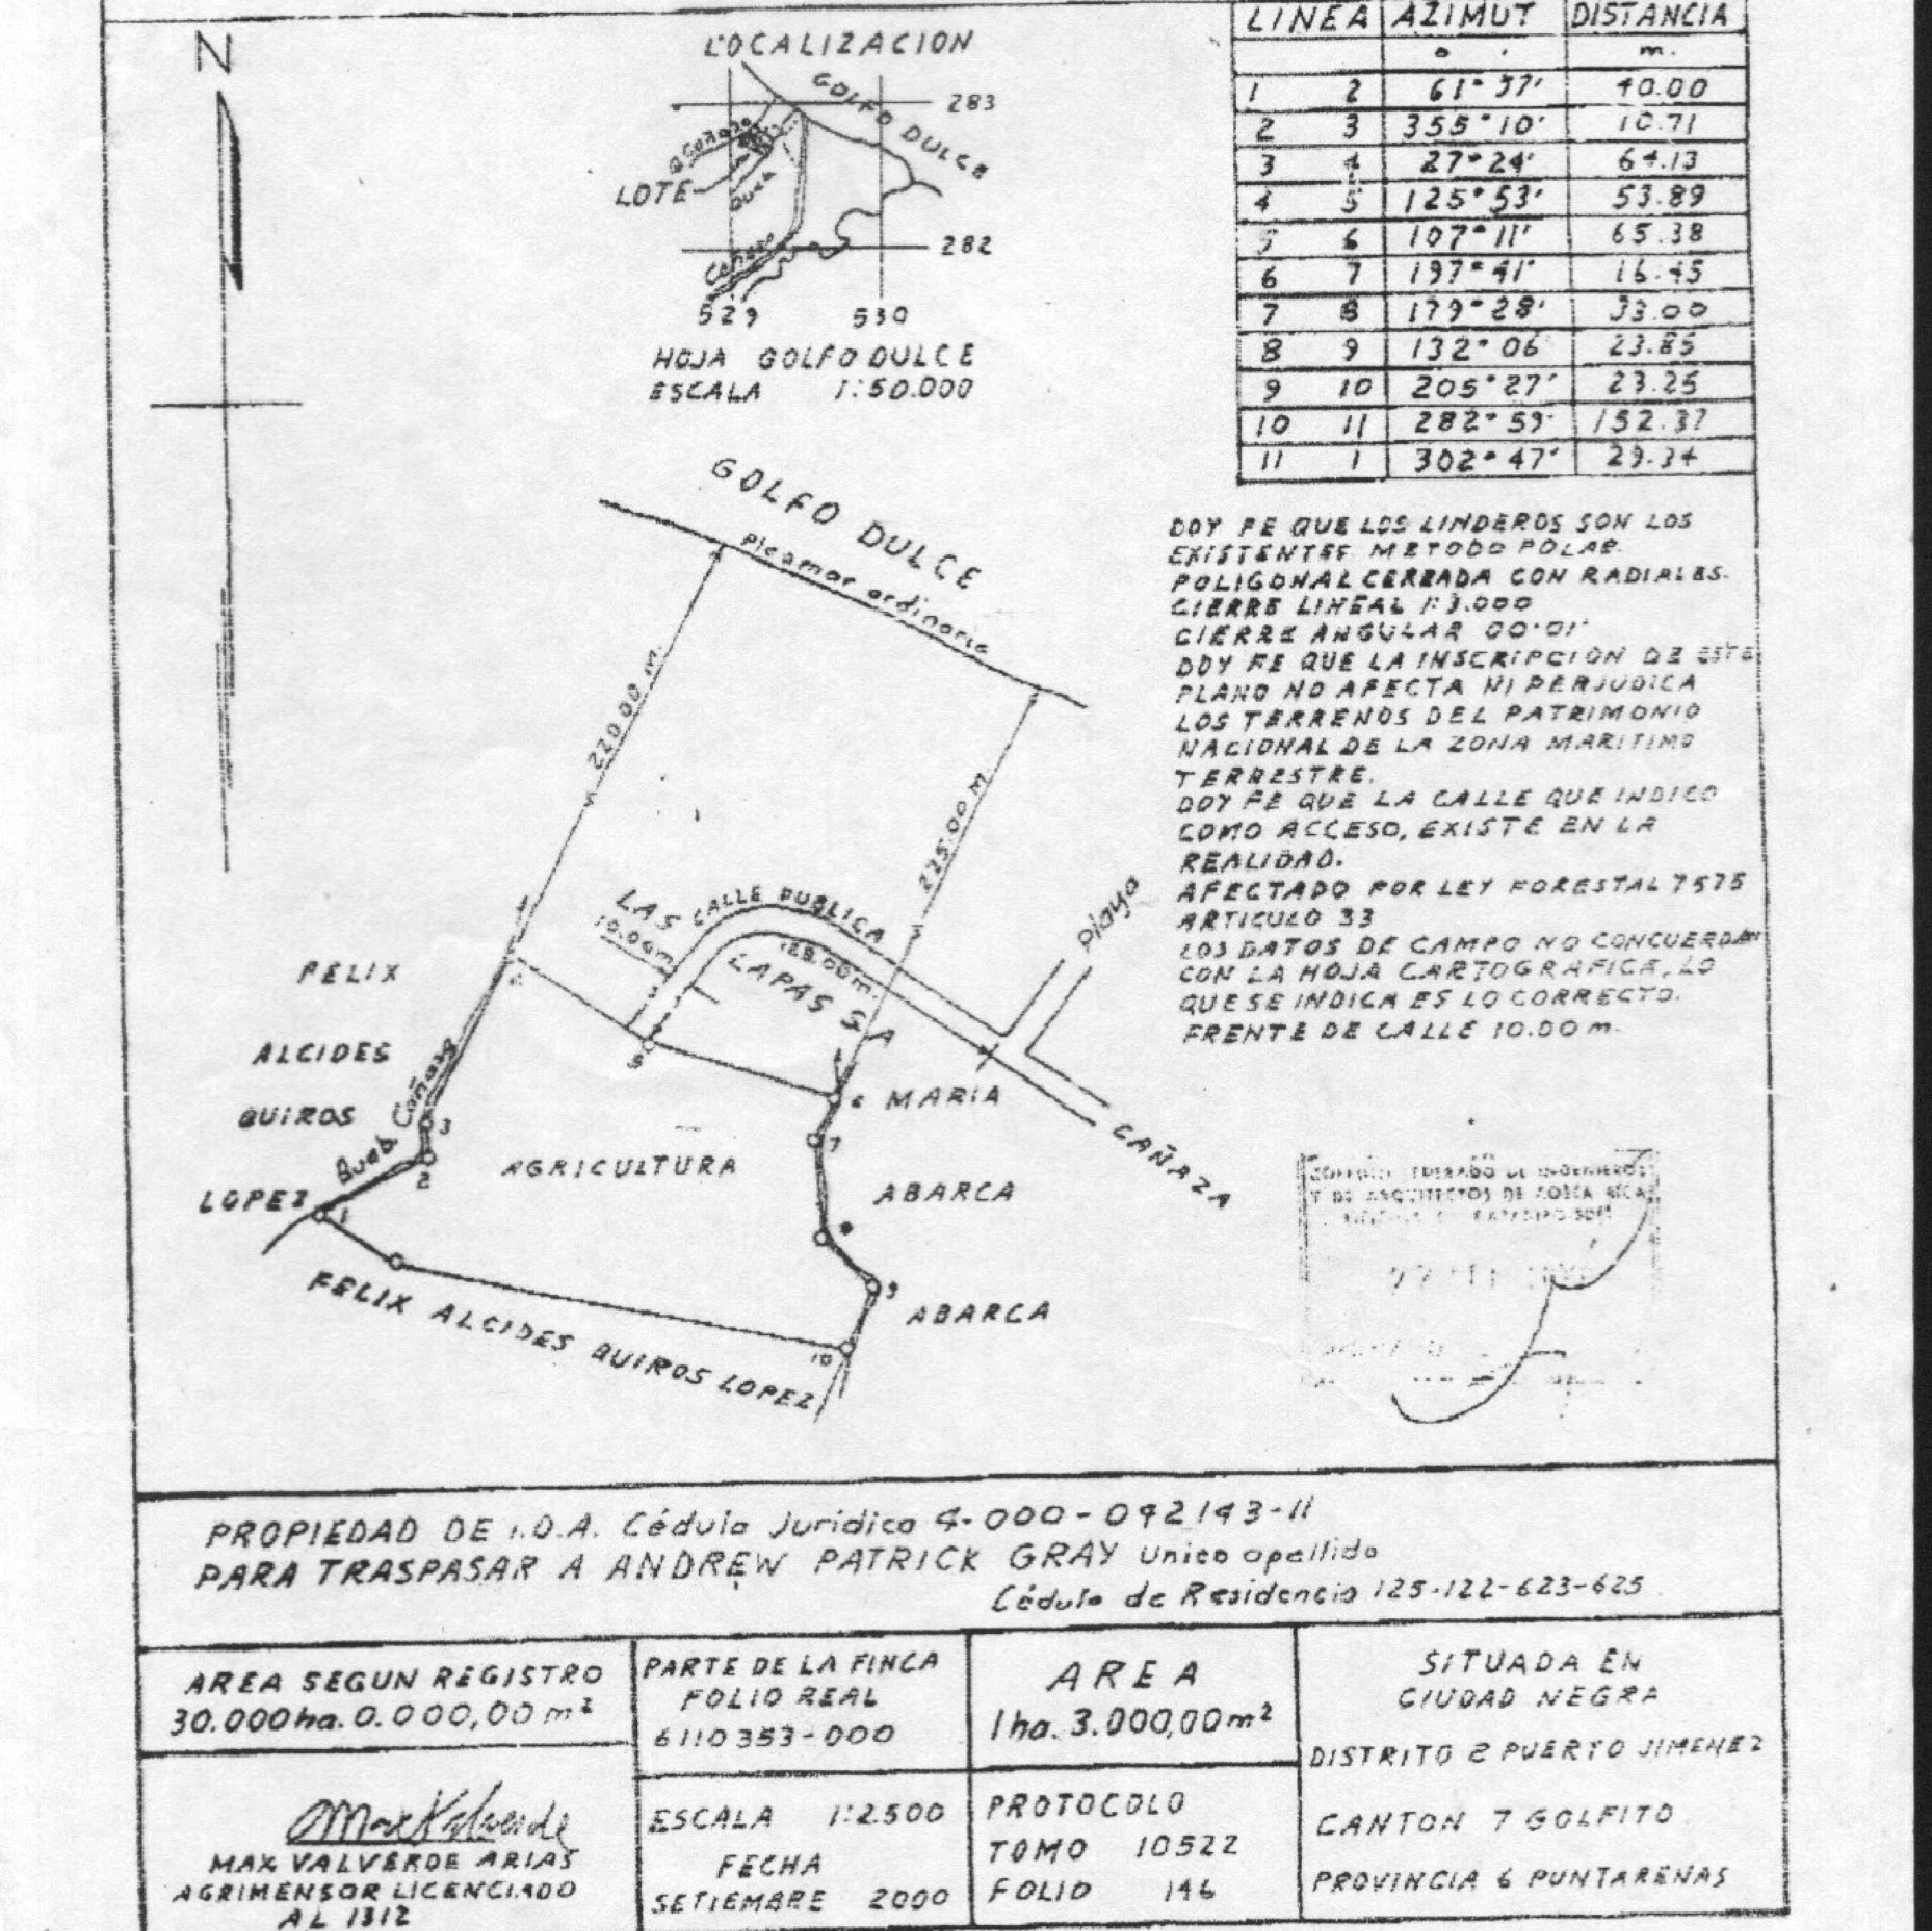 N
LOCALIZACION
GOLFO DULCE
283
LOTE
Queb
282
529 530
HOJA GOLFO DULCE
ESCALA 1:50.000
LINEA AZIMUT DISTANCIA
° ' m.
1 2 61°37' 40.00
2 3 355°10' 10.71
3 4 27°24' 64.13
4 5 125°53' 53.89
5 6 107°11' 65.38
6 7 197°41' 16.45
7 8 179°28' 33.00
8 9 132°06' 23.85
9 10 205°27' 23.25
10 11 282°59' 152.37
11 1 302°47' 29.34
GOLFO DULCE
Pleamar ordinaria
220.00 m.
225.00 m
LAS
CALLE PUBLICA
10.00m
128.00m.
LAPAS S A
Playa
CAÑAZA
FELIX
ALCIDES
QUIROS
LOPEZ
Queb Cañaza
1
2
3
5
6
7
9
10
AGRICULTURA
MARIA
ABARCA
ABARCA
FELIX ALCIDES QUIROS LOPEZ
DOY FE QUE LOS LINDEROS SON LOS
EXISTENTES METODO POLAR.
POLIGONAL CERRADA CON RADIALES.
CIERRE LINEAL 1:3.000
CIERRE ANGULAR 00°01'
DOY FE QUE LA INSCRIPCION DE ESTE
PLANO NO AFECTA NI PERJUDICA
LOS TERRENOS DEL PATRIMONIO
NACIONAL DE LA ZONA MARITIMO
TERRESTRE.
DOY FE QUE LA CALLE QUE INDICO
COMO ACCESO, EXISTE EN LA
REALIDAD.
AFECTADO POR LEY FORESTAL 7575
ARTICULO 33
LOS DATOS DE CAMPO NO CONCUERDAN
CON LA HOJA CARTOGRAFICA, LO
QUE SE INDICA ES LO CORRECTO.
FRENTE DE CALLE 10.00 m.
FEDERADO DE INGENIEROS
Y DE ARQUITECTOS DE COSTA RICA
PROPIEDAD DE I.D.A. Cédula Jurídica 4-000-042143-11
PARA TRASPASAR A ANDREW PATRICK GRAY Unico apellido
Cédula de Residencia 125-122-623-625
AREA SEGUN REGISTRO
30.000 ha. 0.000,00 m²
PARTE DE LA FINCA
FOLIO REAL
6110353-000
AREA
1 ha. 3.000,00 m²
SITUADA EN
CIUDAD NEGRA
DISTRITO 2 PUERTO JIMENEZ
CANTON 7 GOLFITO
PROVINCIA 6 PUNTARENAS
Max Valverde
MAX VALVERDE ARIAS
AGRIMENSOR LICENCIADO
AL 1312
ESCALA 1:2.500
FECHA
SETIEMBRE 2000
PROTOCOLO
TOMO 10522
FOLIO 146